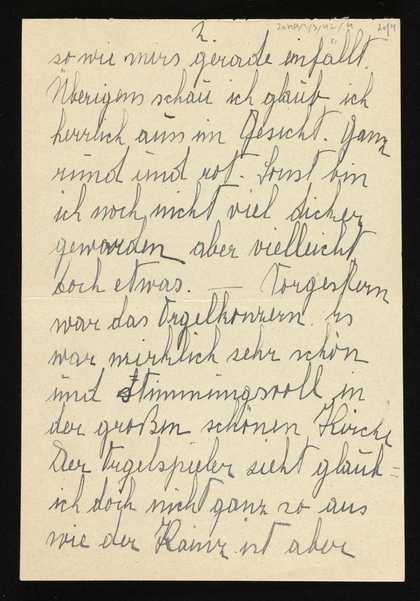 2.
so wie mirs gerade einfällt.
Überigens schau ich glaub ich
herrlich aus im Gesicht. Ganz
rund und rot. Sonst bin
ich noch nicht viel dicker
geworden aber vielleicht
doch etwas. — Vorgestern
war das Orgelkonzern. Es
war wirklich sehr schön
und Stimmungsvoll in
der großen schönen Kirche
Der Orgelspieler sieht glaub=
ich doch nicht ganz so aus
wie der Kainz ist aber